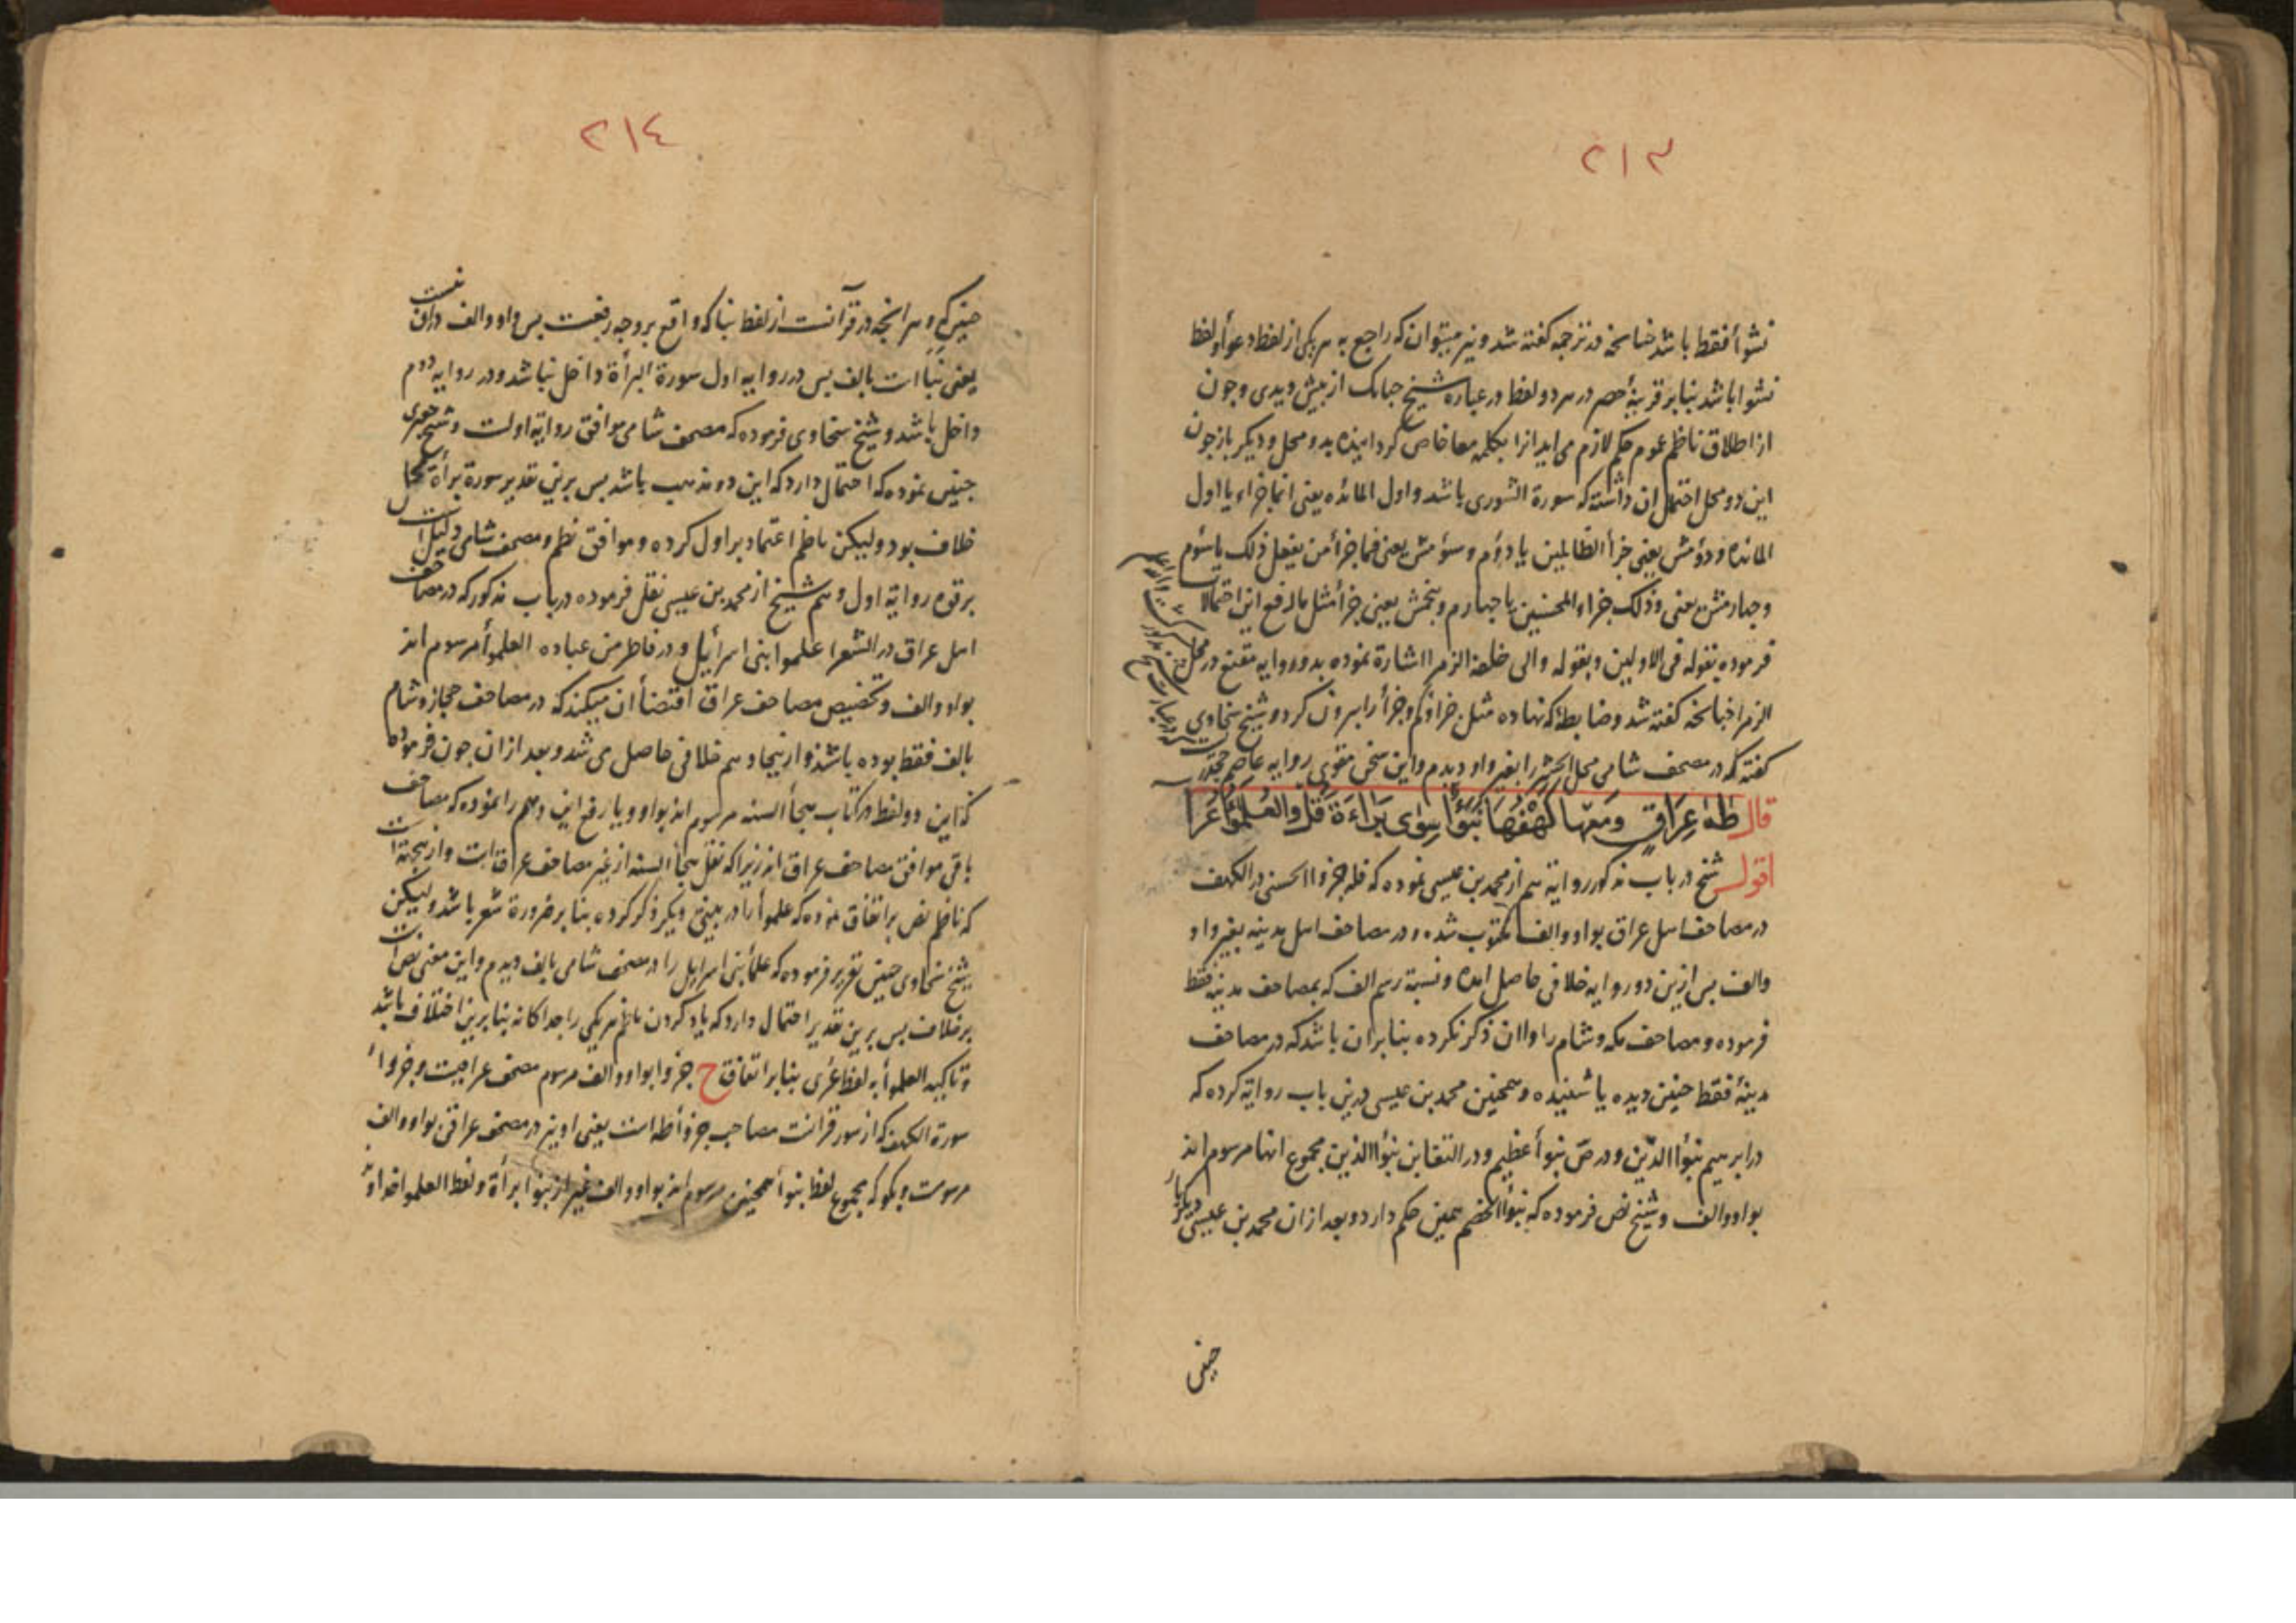 ٢١٣
نشوأ فقط باشد چنانچه در ترجمه گفته شد و نیز میتوان که راجع به هر یکی از لفظ دعوأ و لفظ
نشوا باشد بنا بر قرینهٔ حصر در هر دو لفظ در عباره شیخ چنانک از پیش دیدی و چون
از اطلاق ناظم عموم حکم لازم می اید انرا بکلمه معا خاص گردانیده بدو محل و دیگر باز چون
این دو محل احتمال ان داشته که سورة الشوری باشد و اول المائده یعنی انما جزاء یا اول
المائده و دومش یعنی جزأ الظالمین یا دوم و سومش یعنی فما جزأ من یفعل ذلک یا سوم
و چهارمش یعنی و ذلک جزاء المحسنین یا چهارم و پنجمش یعنی جزأ مثل ما رفع این احتمالا
فرموده بقوله فی الاولین و بقوله والی خلف الزمر اشارة نموده بدو روایه مقنع در محل
الزمر چنانچه گفته شد و ضابطه که نهاده مثل جزاؤکم و جزأ را بیرون کرد و شیخ سخاوی
گفته که در مصحف شامی محل الحشر را بغیر واو دیدم و این سخن مقوی روایه عاصم جحدر
قال طه عراق ومعها كهفها نبؤا سوى براءة قل والعلمؤا عرا
اقول شیخ در باب مذکور روایة هم از محمد بن عیسی نموده که فله جزوا الحسنی در الکهف
در مصاحف اهل عراق بواو والف مکتوب شده و در مصاحف اهل مدینه بغیر واو
والف پس ازین دو روایه خلافی حاصل امده و نسبة رسم الف که بمصاحف مدینه فقط
فرموده و مصاحف مکه و شام را و اان ذکر نکرده بنا بر ان باشد که در مصاحف
مدینهٔ فقط چنین دیده یا شنیده و همچنین محمد بن عیسی درین باب روایة کرده که
در ابرهیم نبؤا الذین و در ص نبوأ عظیم و در التغابن نبؤا الذین مجموع انها مرسوم اند
بواو والف و شیخ نص فرموده که نبؤا الخصم همین حکم دارد و بعد از ان محمد بن عیسی دیگر بار
چنین
٢١٤
چنین که و هر انچه در قرآنست از لفظ نبا که واقع بر وجه رفعست پس واو والف در ان
یعنی نبأ است بالف پس در روایه اول سورة البرأة داخل نباشد و در روایه دوم
داخل باشد و شیخ سخاوی فرموده که مصحف شامی موافق روایة اولست و شیخ جعبری
چنین نموده که احتمال دارد که این دو مذهب باشد پس برین تقدیر سورة برأة محل
خلاف بود ولیکن ناظم اعتماد بر اول کرده و موافق نظم و مصحف شامی دلیل است
بر قوه روایة اول و هم شیخ از محمد بن عیسی نقل فرموده در باب مذکور که در مصاحف
اهل عراق در الشعرا علموا بنی اسرأیل و در فاطر من عباده العلموأ مرسوم اند
بواو والف و تخصیص مصاحف عراق اقتضأ ان میکند که در مصاحف حجاز و شام
بالف فقط بوده باشند و ازینجا و هم خلافی حاصل می شد و بعد از ان چون فرموده
که این دو لفظ در کتاب هجأ السنه مرسوم اند بواو و یا رفع این وهم را نموده که مصاحف
باقی موافق مصاحف عراق اند زیرا که نقل هجأ السنه از غیر مصاحف عراق است و ازین جهة است
که ناظم نص بر اتفاق نموده که علموأ را در بیتی دیگر ذکر کرده بنا بر ضرورة شعر باشد ولیکن
شیخ سخاوی چنین تقریر فرموده که علمأ بنی اسرایل را در مصحف شامی بالف دیدم و این معنی نص است
بر خلاف پس برین تقدیر احتمال دارد که یاد کردن ناظم هر یکی را جداگانه بنا برین اختلاف باشد
و تاکید العلموأ به لفظ عری بنا بر اتفاق ح جزوا بواو والف مرسوم مصحف عراقیست و جزوأ
سورة الکهف که از سور قرانست مصاحب جزوأ طه است یعنی او نیز در مصحف عراقی بواو والف
مرسومست و بگو که مجموع لفظ نبوأ همچنین مرسوم اند بواو والف غیر از نبوا برأة و لفظ العلموا